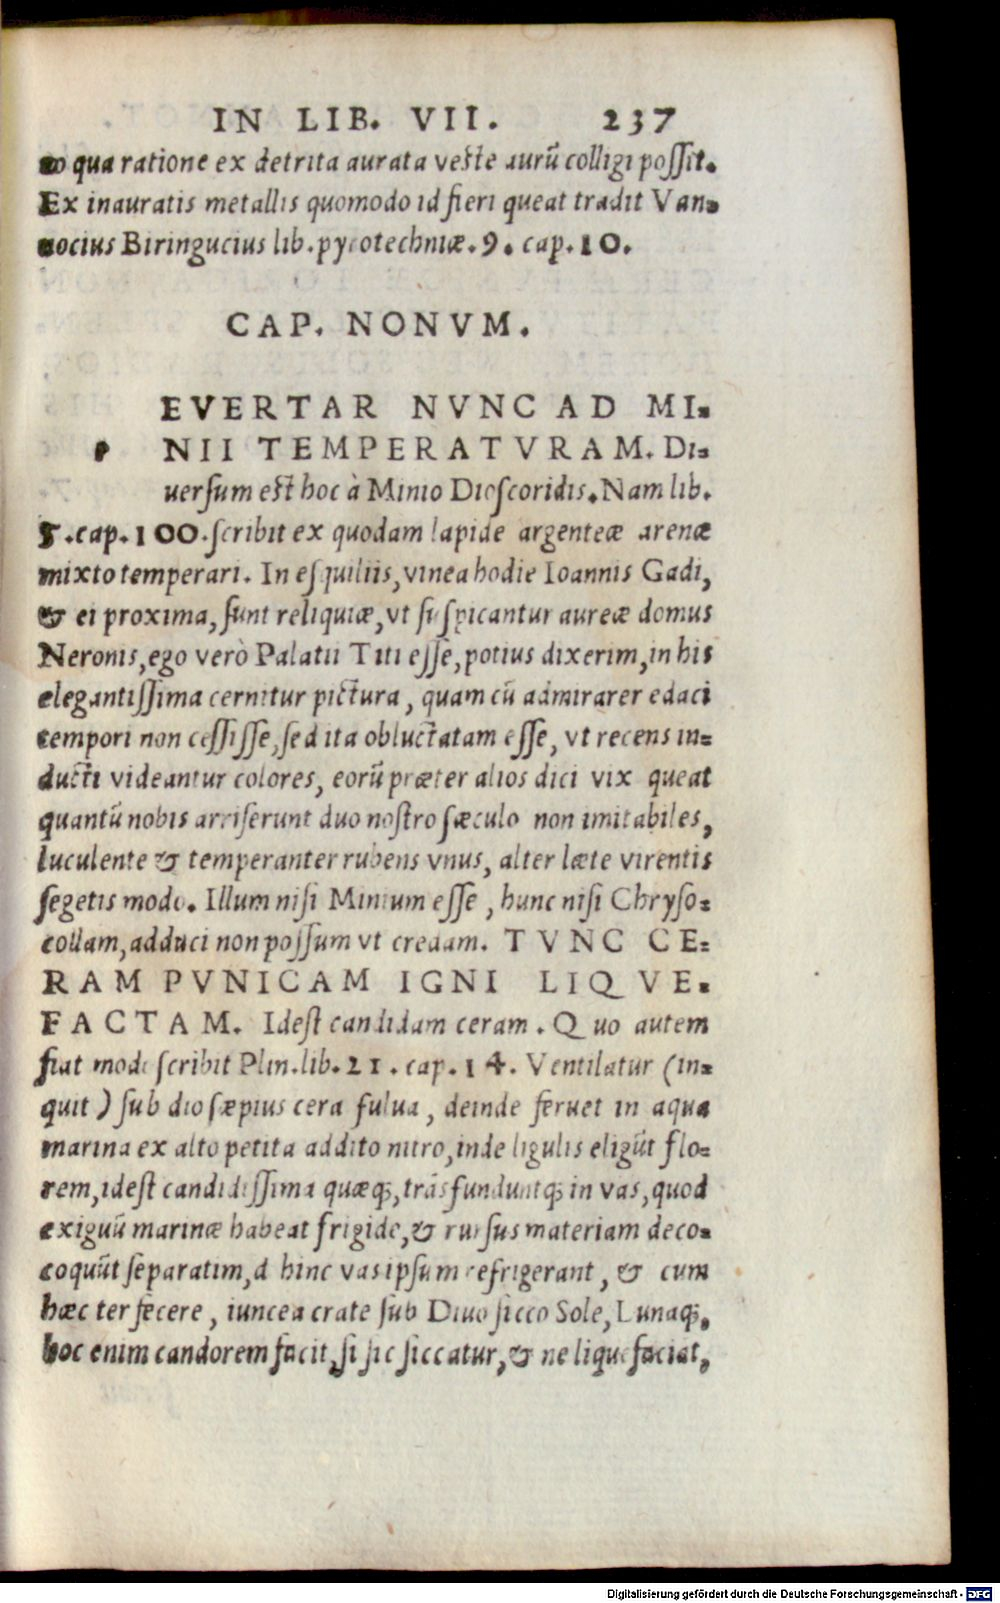 IN LIB. VII. 237
eo qua ratione ex detrita aurata veste aurū colligi possit.
Ex inauratis metallis quomodo id fieri queat tradit Van-
nocius Biringucius lib. pyrotechniæ. 9. cap. 10.
CAP. NONVM.
EVERTAR NVNC AD MI-
r NII TEMPERATVRAM. Di-
uersum est hoc à Minio Dioscoridis. Nam lib.
5. cap. 100. scribit ex quodam lapide argenteæ arenæ
mixto temperari. In esquiliis, vinea hodie Ioannis Gadi,
& ei proxima, sunt reliquiæ, vt suspicantur aureæ domus
Neronis, ego verò Palatii Titi esse, potius dixerim, in his
elegantissima cernitur pictura, quam cū admirarer edaci
tempori non cessisse, sed ita obluctatam esse, vt recens in-
ducti videantur colores, eorū præter alios dici vix queat
quantū nobis arriserunt duo nostro sæculo non imitabiles,
luculente & temperanter rubens vnus, alter læte virentis
segetis modo. Illum nisi Minium esse, hunc nisi Chryso-
collam, adduci non possum vt credam. TVNC CE-
RAM PVNICAM IGNI LIQVE-
FACTAM. Idest candidam ceram. Quo autem
fiat modo scribit Plin. lib. 21. cap. 14. Ventilatur (in-
quit) sub dio sæpius cera fulua, deinde feruet in aqua
marina ex alto petita addito nitro, inde ligulis eligūt flo-
rem, idest candidissima quæq;, trāsfunduntq; in vas, quod
exiguū marinæ habeat frigidę, & rursus materiam deco-
coquūt separatim, d hinc vas ipsum refrigerant, & cum
hæc ter fecere, iuncea crate sub Diuo sicco Sole, Lunaq;,
hoc enim candorem facit, si sic siccatur, & ne liquefaciat,
Digitalisierung gefördert durch die Deutsche Forschungsgemeinschaft - DFG